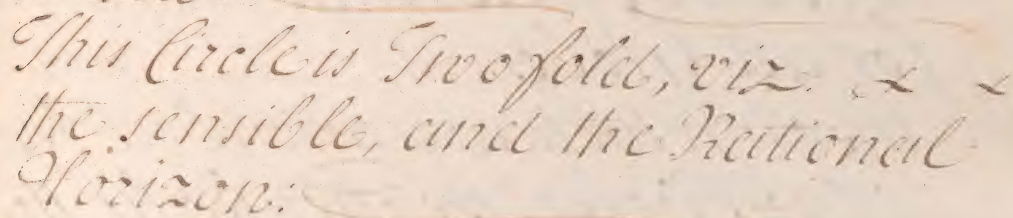 This Circle is Twofold, viz.
the sensible, and the Rational
Horizon: